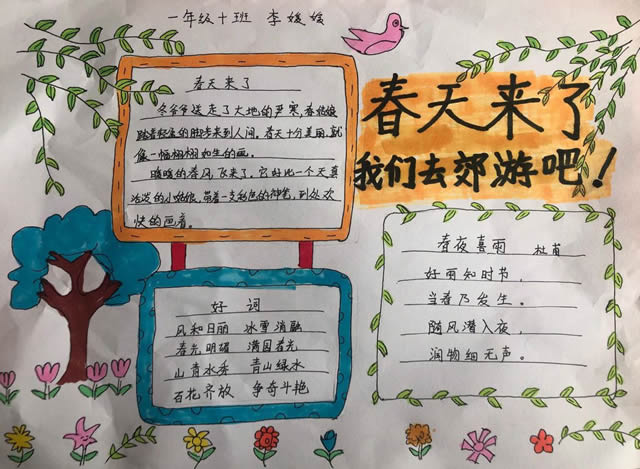 一年级十班 李媛媛
春天来了
我们去郊游吧！
春天来了
冬爷爷送走了大地的严寒，春姑娘
踏着轻盈的脚步来到人间。春天十分美丽，就
像一幅栩栩如生的画。
暖暖的春风飞来了，它好比一个天真
活泼的小姑娘，带着一支彩色的神笔，到处欢
快的画着。
春夜喜雨 杜甫
好雨知时节，
当春乃发生。
随风潜入夜，
润物细无声。
好词
风和日丽 冰雪消融
春光明媚 满园春光
山青水秀 青山绿水
百花齐放 争奇斗艳